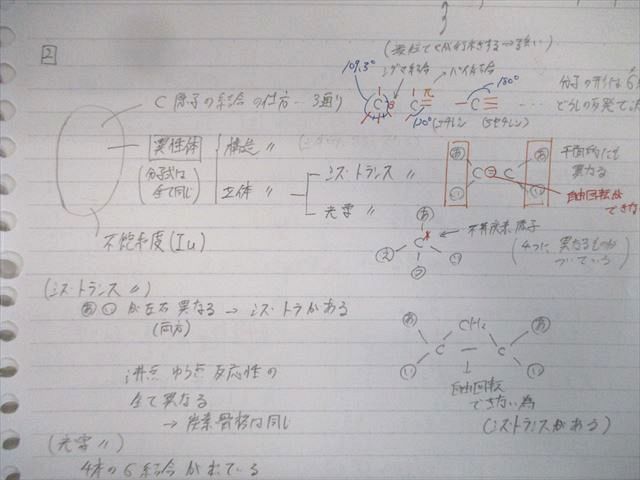 3
2
109.3°
シグマ結合
パイ結合
180°
C原子の結合の仕方…3通り
C
C
π
-C≡
…
120°(エチレン
アセチレン)
異性体
構造〃
(分子式は
全て同じ)
立体〃
シス・トランス〃
光学〃
あ
い
C
C
あ
い
異なる
自由回転が
できない
不飽和度(Iu)
あ
C
*
い
う
え
不斉炭素原子
(4つに異なるものが
ついている)
(シス・トランス〃)
あ い が左右異なる → シス・トラがある
(両方)
沸点 ゆう点 反応性の
全て異なる
→ 炭素骨格は同じ
あ
CH2
あ
C - C
い
い
自由回転
できない為
(シストランスがある)
(光学〃)
4本のσ結合が出ている